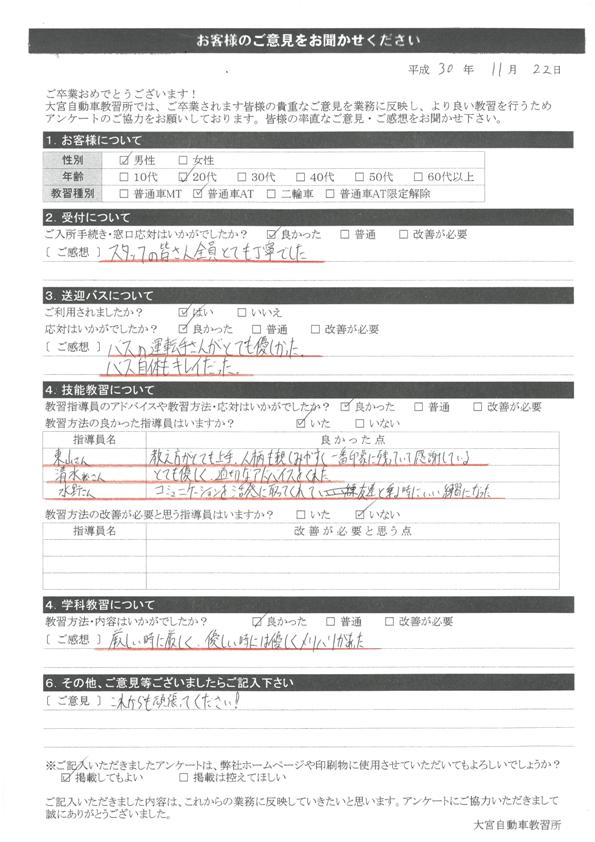 お客様のご意見をお聞かせください
平成 30 年 11 月 22 日
ご卒業おめでとうございます！
大宮自動車教習所では、ご卒業されます皆様の貴重なご意見を業務に反映し、より良い教習を行うため
アンケートのご協力をお願いしております。皆様の率直なご意見・ご感想をお聞かせ下さい。
1．お客様について
性別 ☑男性 □女性
年齢 □10代 ☑20代 □30代 □40代 □50代 □60代以上
教習種別 □普通車MT ☑普通車AT □二輪車 □普通車AT限定解除
2．受付について
ご入所手続き・窓口応対はいかがでしたか？ ☑良かった □普通 □改善が必要
［ご感想］スタッフの皆さん全員とても丁寧でした
3．送迎バスについて
ご利用されましたか？ ☑はい □いいえ
応対はいかがでしたか？ ☑良かった □普通 □改善が必要
［ご感想］バスの運転手さんがとても優しかった。
バス自体もキレイだった。
4．技能教習について
教習指導員のアドバイスや教習方法・応対はいかがでしたか？ ☑良かった □普通 □改善が必要
教習方法の良かった指導員はいますか？ ☑いた □いない
指導員名 良かった点
東山さん 教え方がとても上手、人柄も親しみやすく一番印象に残っていて感謝している
清水さん とても優しく、適切なアドバイスをくれた
水野さん コミュニケーションを活発に取ってくれてい 友達と乗る時にいい練習になった
教習方法の改善が必要と思う指導員はいますか？ □いた ☑いない
指導員名 改善が必要と思う点
4．学科教習について
教習方法・内容はいかがでしたか？ ☑良かった □普通 □改善が必要
［ご感想］厳しい時に厳しく、優しい時には優しくメリハリがあった
6．その他、ご意見等ございましたらご記入下さい
［ご意見］これからも頑張ってください！
※ご記入いただきましたアンケートは、弊社ホームページや印刷物に使用させていただいてもよろしいでしょうか？
☑掲載してもよい □掲載は控えてほしい
ご記入いただきました内容は、これからの業務に反映していきたいと思います。アンケートにご協力いただきまして
誠にありがとうございました。
大宮自動車教習所